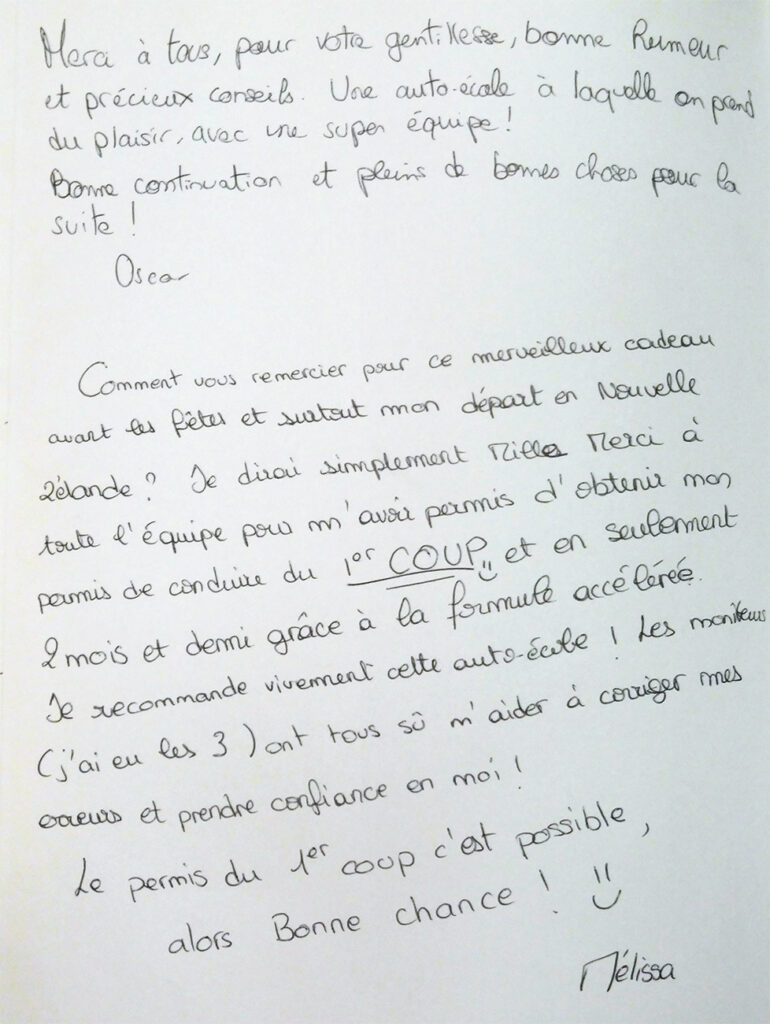 Merci à tous, pour votre gentillesse, bonne humeur
et précieux conseils. Une auto-école à laquelle on prend
du plaisir, avec une super équipe !
Bonne continuation et pleins de bonnes choses pour la
suite !
Oscar
Comment vous remercier pour ce merveilleux cadeau
avant les fêtes et surtout mon départ en Nouvelle
Zélande ? Je dirai simplement Mille Merci à
toute l'équipe pour m'avoir permis d'obtenir mon
permis de conduire du 1er COUP et en seulement
2 mois et demi grâce à la formule accélérée.
Je recommande vivement cette auto-école ! Les moniteurs
(j'ai eu les 3) ont tous sû m'aider à corriger mes
erreurs et prendre confiance en moi !
Le permis du 1er coup c'est possible,
alors Bonne chance !
Mélissa